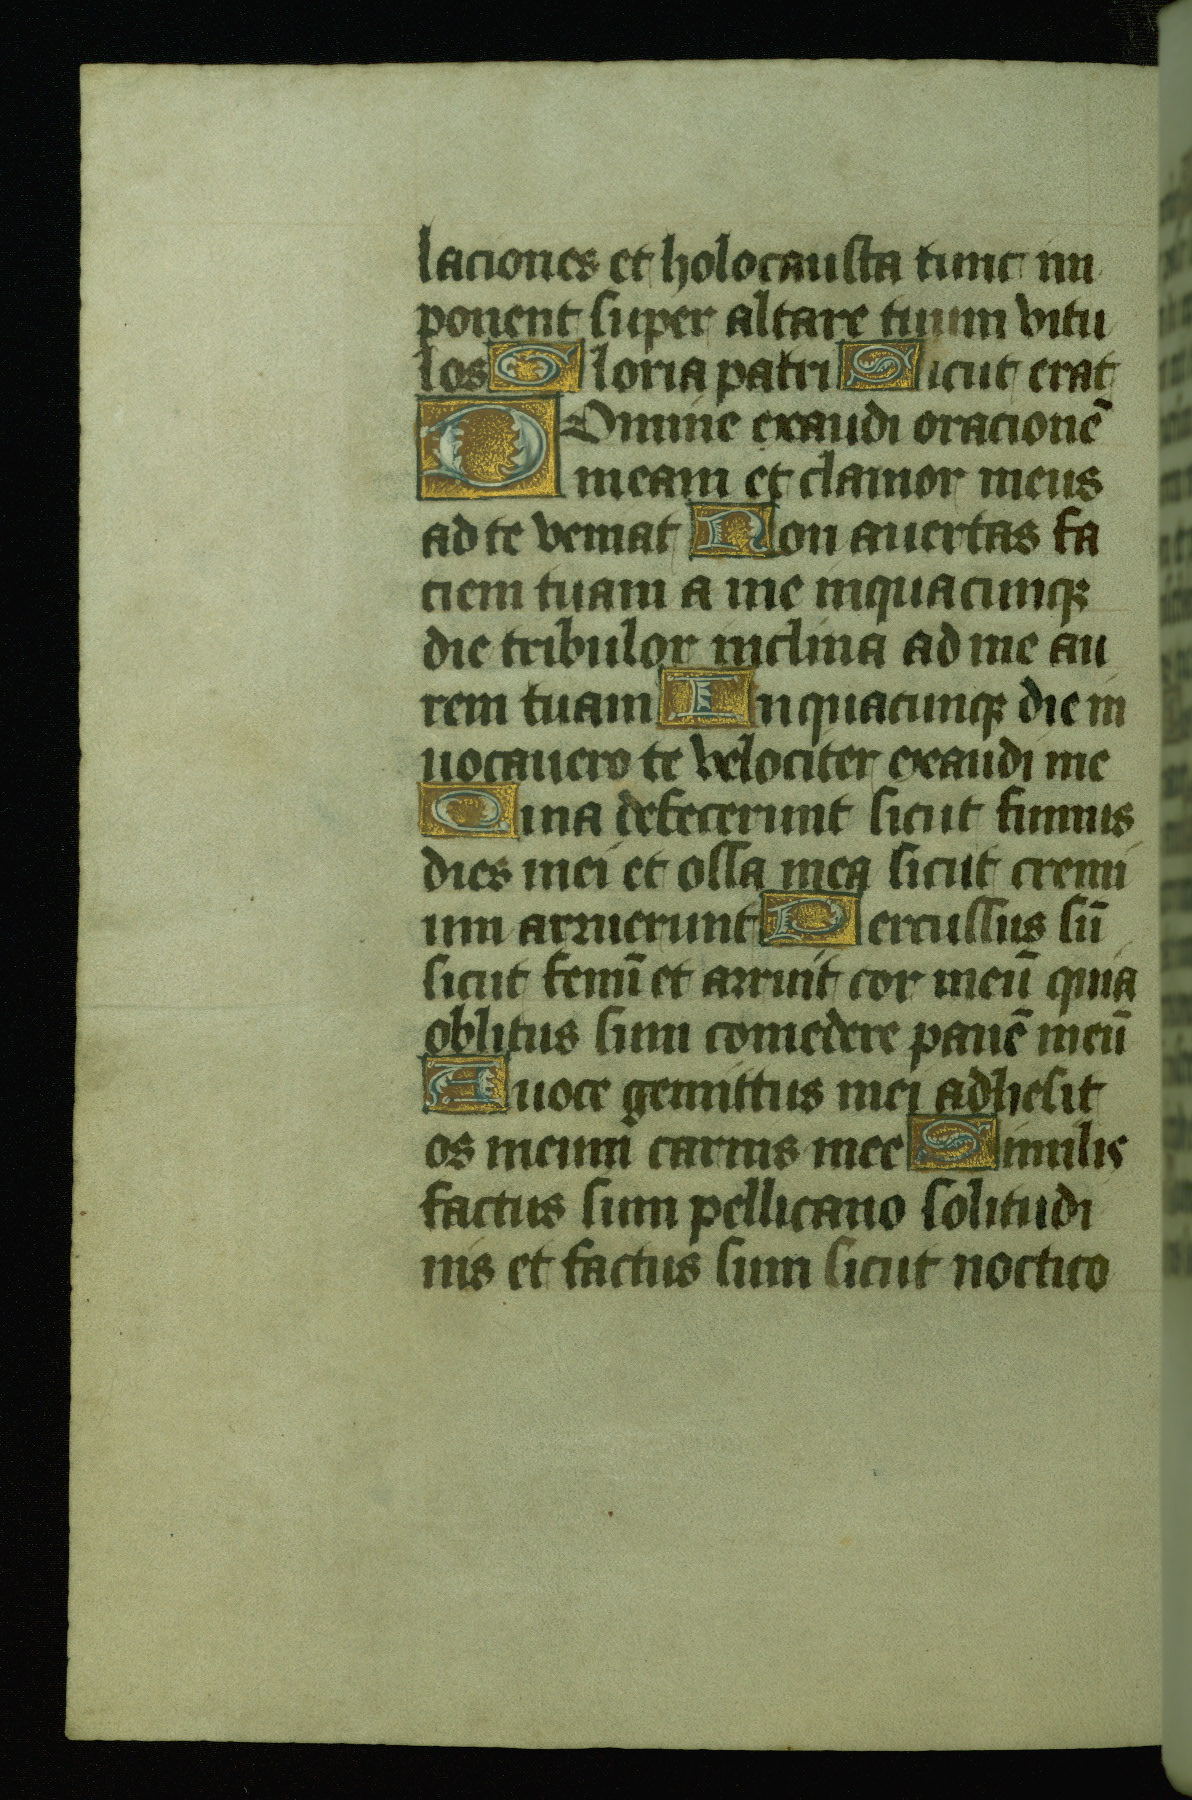 laciones et holocausta tunc im
ponent super altare tuum vitu
los Gloria patri Sicut erat
Domine exaudi oracionē
meam et clamor meus
ad te veniat Non auertas fa
ciem tuam a me inquacunqꝫ
die tribulor inclina ad me au
rem tuam Inquacunqꝫ die in
uocauero te velociter exaudi me
Quia defecerunt sicut fumus
dies mei et ossa mea sicut cremi
um aruerunt Percussus sū
sicut fenū et arruit cor meū quia
oblitus sum comedere panē meū
A uoce gemittus mei adhesit
os meum carnis mee Similis
factus sum pellicano solitudi
nis et factus sum sicut noctico